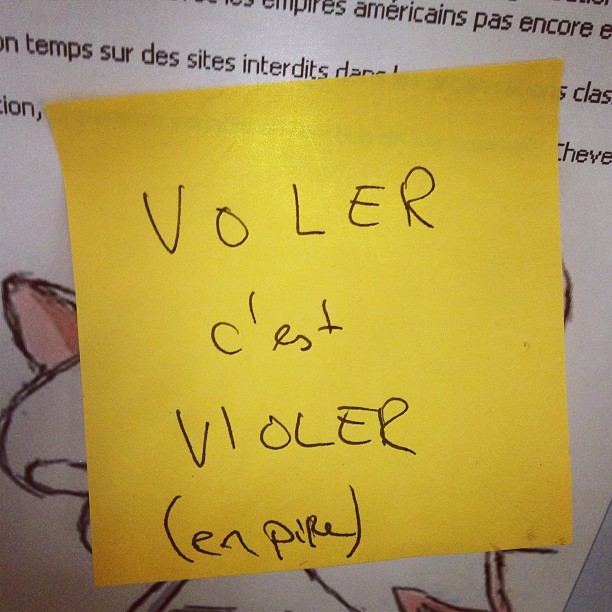 les empires américains pas encore e
on temps sur des sites interdits dans clas
tion,
Cheve
VOLER
c'est
VIOLER
(en pire)